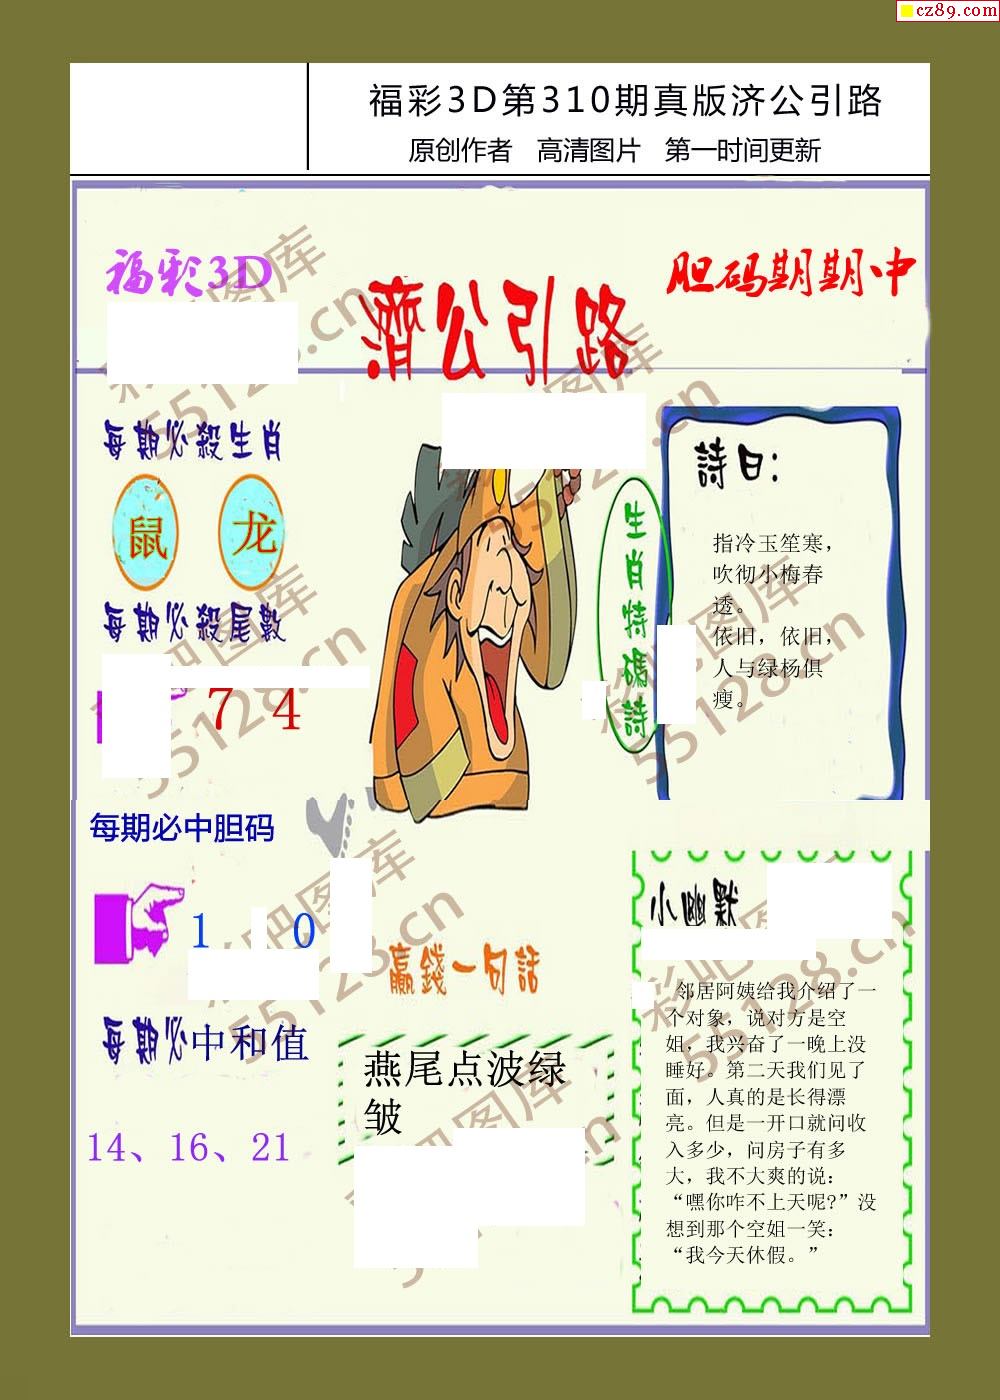 cz89.com
福彩3D第310期真版济公引路
原创作者 高清图片 第一时间更新
福彩3D
濟公引路
胆码期期中
每期必殺生肖
鼠 龙
每期必殺尾數
7 4
每期必中胆码
1 0
每期必中和值
14、16、21
生肖特碼詩
詩曰：
指冷玉笙寒，
吹彻小梅春
透。
依旧，依旧，
人与绿杨俱
瘦。
贏錢一句話
燕尾点波绿
皱
小幽默
邻居阿姨给我介绍了一
个对象，说对方是空
姐，我兴奋了一晚上没
睡好。第二天我们见了
面，人真的是长得漂
亮。但是一开口就问收
入多少，问房子有多
大，我不大爽的说：
“嘿你咋不上天呢?”没
想到那个空姐一笑：
“我今天休假。”
彩吧图库
55128.cn